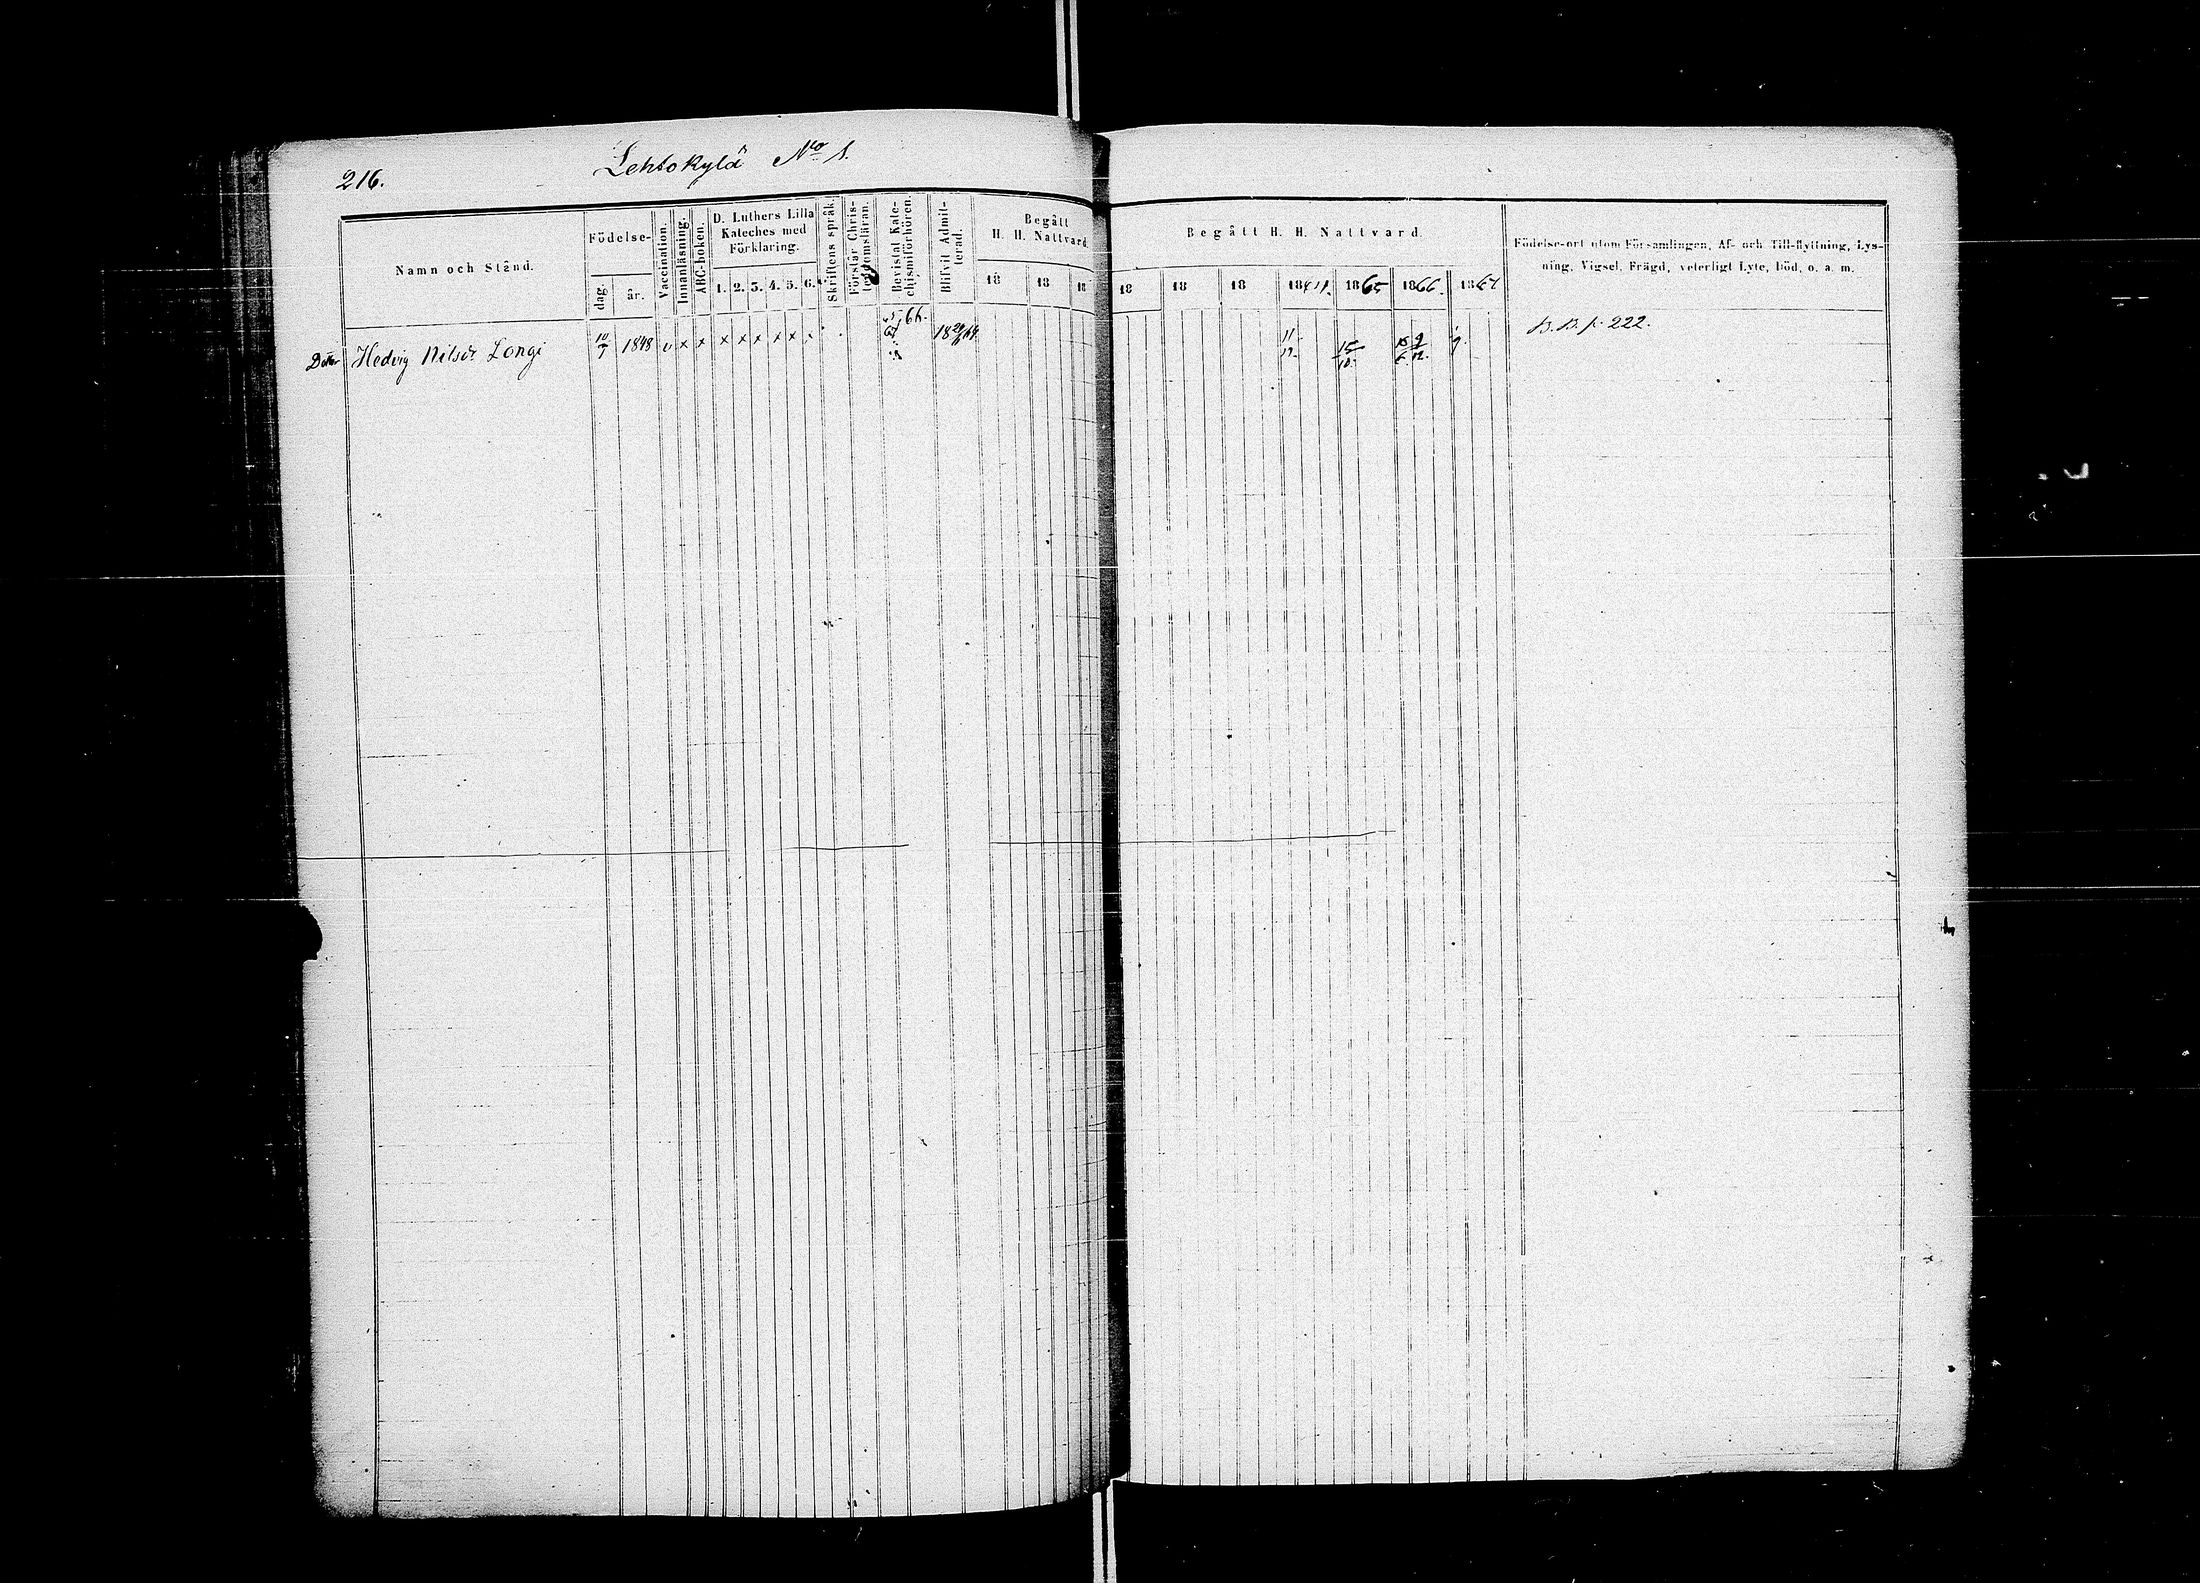 216.
Lehtokylä No 1.
Namn och Stånd.
Födelse-
dag.
år.
Vaccination.
Innanläsning.
ABC-boken.
D. Luthers Lilla
Kateches med
Förklaring.
1. 2. 3. 4. 5. 6.
Skriftens språk.
Förstår Chris-
tendomsläran.
Bevistat Kate-
chismiförhören.
Blifvit Admit-
terad.
Begått
H. H. Nattvard.
18 18 18
Begått H. H. Nattvard.
18 18 18 1865 1866. 1867
Födelse-ort utom Församlingen, Af- och Till-flyttning, Lys-
ning, Vigsel, Frägd, veterligt Lyte, Död, o. a. m.
Dotter Hedvig Nilsdr Longi 10/7 1848 v x x x x x x x 66. 18 64 11 15/10 9/12 B. B. p. 222.